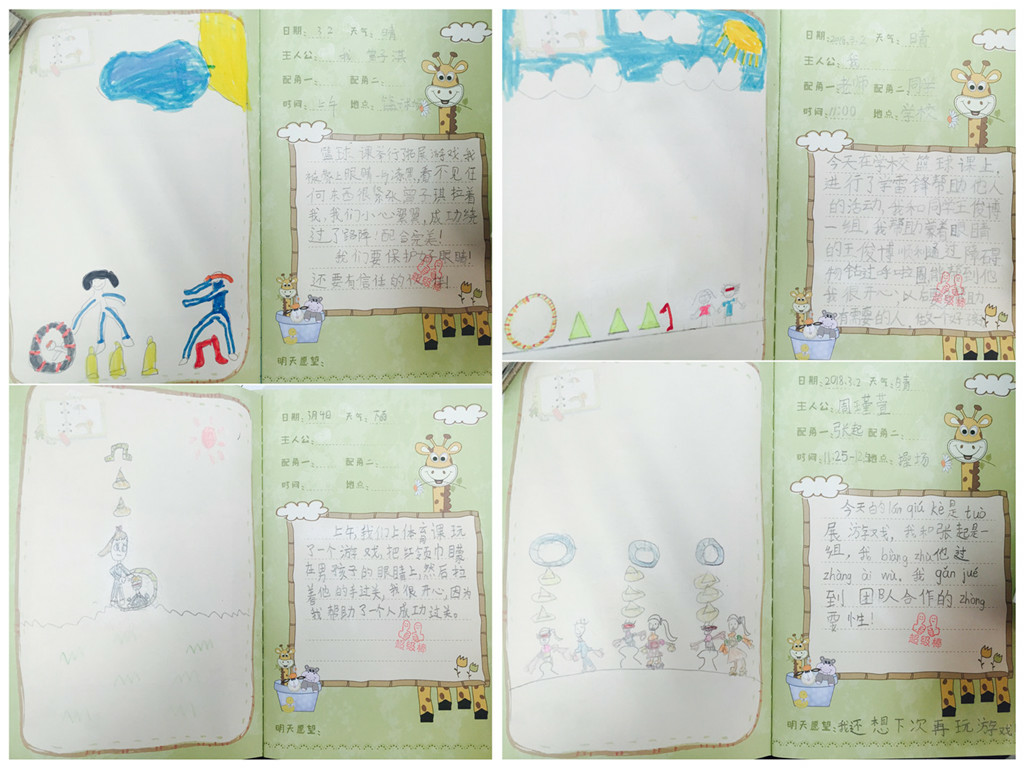 日期: 3.2 天气: 晴
主人公: 我 曾子淇
配角一: 配角二:
时间: 上午 地点:
篮球课举行拓展游戏,我
被蒙上眼睛,一片漆黑,看不见任
何东西很紧张,曾子淇拉着
我,我们小心翼翼,成功绕
过了路障!配合完美!
我们要保护好眼睛!
还要有信任的伙伴!
明天愿望:
日期: 2018.3.2 天气: 晴
主人公: 我
配角一: 老师 配角二: 同学
时间: 11:00 地点: 学校
今天在学校篮球课上,
进行了学雷锋帮助他人
的活动,我和同学王俊博
一组,我帮助蒙着眼睛
的王俊博顺利通过障碍
物钻过呼啦圈 帮到他
我很开心,以后 助
有需要的人,做一个好孩
日期: 3月4日 天气: 晴
主人公:
配角一: 配角二:
时间: 地点:
上午,我们上体育课,玩
了一个游戏,把红领巾蒙
在男孩子的眼睛上,然后拉
着他的手过关,我很开心,因为
我想助了一个人成功过关。
超级棒
明天愿望:
日期: 2018.3.2 天气: 晴
主人公: 周瑾萱
配角一: 张起 配角二:
时间: 11:25- 地点: 操场
今天的lán qiú kè是tuò
展游戏,我和张起是一
组,我bāng zhù他过
zhàng ài wù,我gǎn jué
到团队合作的zhòng
要性!
超级棒
明天愿望:我还想下次再玩游戏